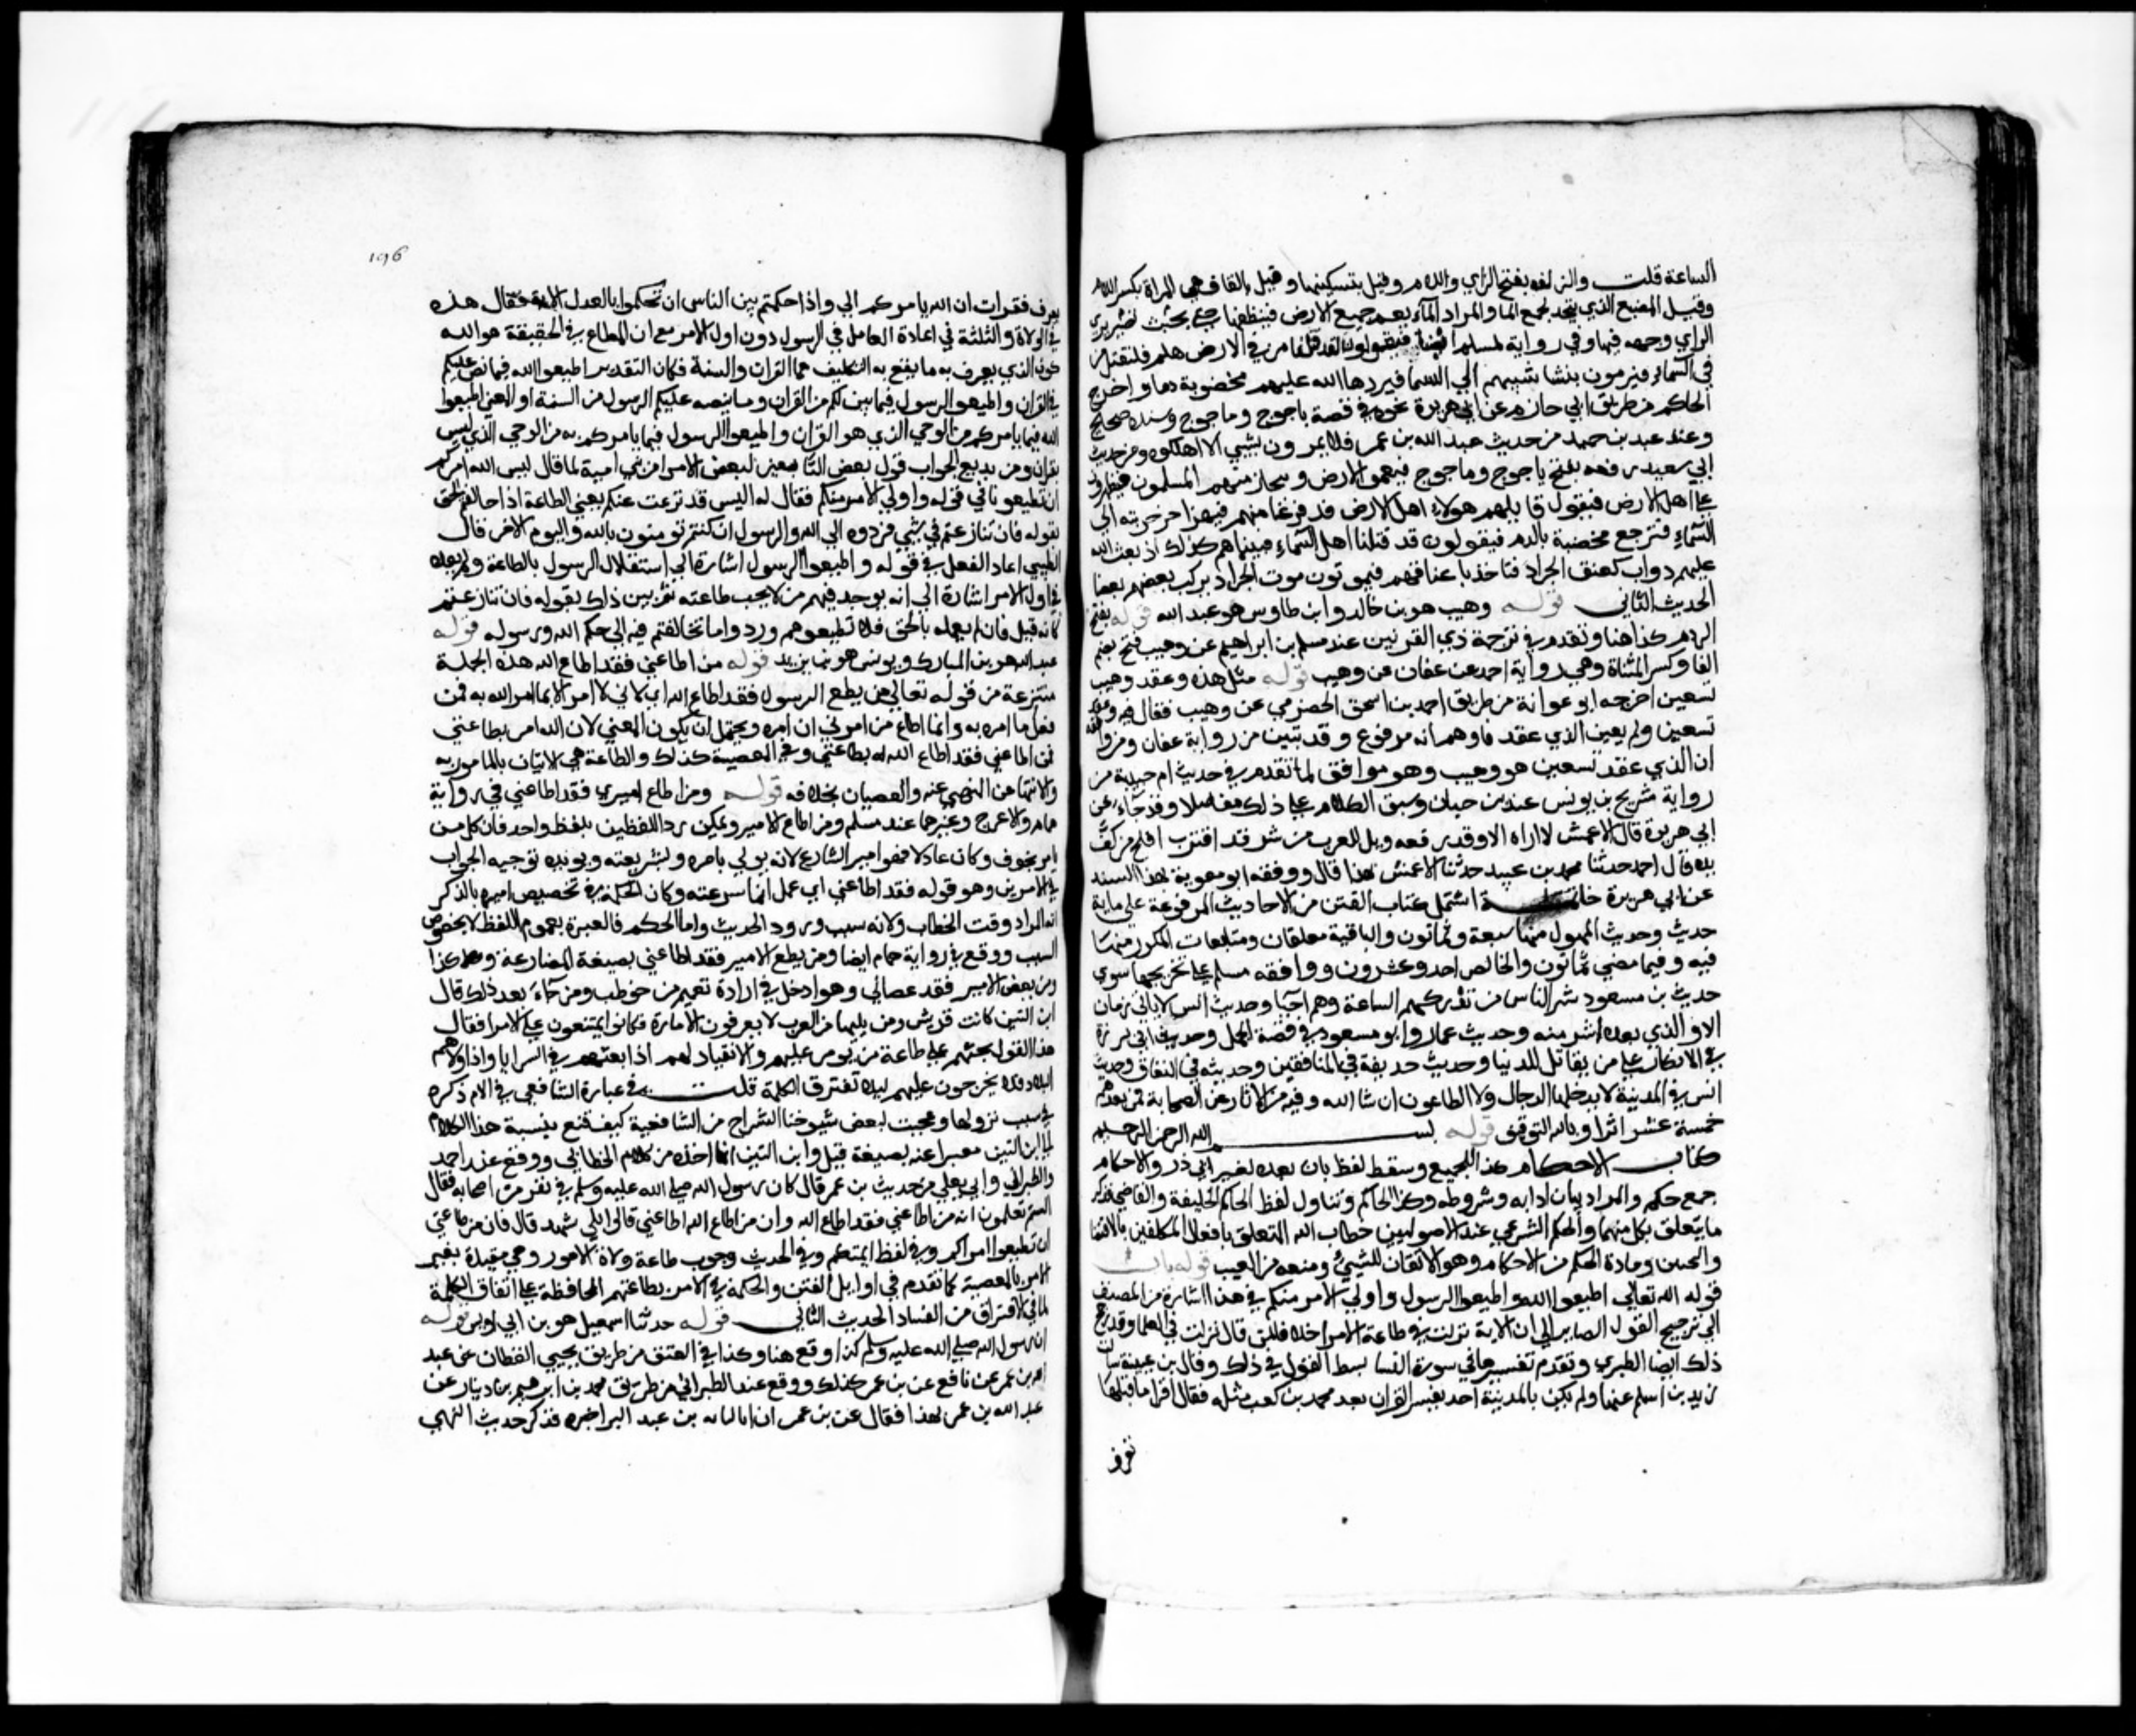 الساعة قلت والزلفه بفتح الزاي واللام وقيل بتسكينها وقيل بالقاف هي المراة بكسر اللام
وقيل المصنع الذي يتخذ لجمع الما والمراد ان الماء يعم جميع الارض فينظفها حتي بحيث تصير يري
الراي وجهه فيها وفي رواية لمسلم ايضا فيقولون لقد قتلنا من في الارض هلم فلنقتل من
في السماء فيرمون بنشابهم الي السما فيردها الله عليهم مخضوبة دما واخرج
الحاكم من طريق ابي حازم عن ابي هريرة نحوه في قصة ياجوج وماجوج وسنده صحيح
وعند عبد بن حميد من حديث عبد الله بن عمر فلا يمرون بشيي الا اهلكوه ومن حديث
ابي سعيد رفعه يفتح ياجوج وماجوج فيعمون الارض وينحاز منهم المسلمون فيظهرون
علي اهل الارض فيقول قايلهم هولاء اهل الارض قد فرغنا منهم فيهز اخر حربته الي
السماء فترجع مخضبة بالدم فيقولون قد قتلنا اهل السماء فبينما هم كذلك اذ بعث الله
عليهم دواب كنغف الجراد فتاخذ باعناقهم فيموتون موت الجراد يركب بعضهم بعضا
الحديث الثاني قوله وهيب هو بن خالد وابن طاوس هو عبد الله قوله يفتح
الردم كذا هنا وتقدم في ترجمة ذي القرنين عند مسلم بن ابراهيم عن وهيب فتح بضم
الفا وكسر المثناة وهي رواية احمد عن عفان عن وهيب قوله مثل هذه وعقد وهيب
تسعين اخرجه ابو عوانة من طريق احمد بن اسحق الحضرمي عن وهيب فقال فيه وعقد
تسعين ولم يعين الذي عقد فاوهم انه مرفوع وقد تبين من رواية عفان ومن وافقه
ان الذي عقد تسعين هو وهيب وهو موافق لما تقدم في حديث ام حبيبة من
رواية شريح بن يونس عند بن حبان وسبق الكلام علي ذلك مفصلا وقد جاء عن
ابي هريرة قال الاعمش لا اراه الا وقد رفعه ويل للعرب من شر قد اقترب افلح من كف
يده قال احمد حدثنا محمد بن عبيد حدثنا الاعمش بهذا قال ووقفه ابو معوية بهذا السند
عن ابي هريرة خاتمة اشتمل كتاب الفتن من الاحاديث المرفوعة علي ماية
حديث وحديث الموصول منها سبعة وثمانون والباقية معلقات ومتابعات المكرر منها
فيه وفيما مضي ثمانون والخالص احد وعشرون ووافقه مسلم علي تخريجها سوي
حديث بن مسعود شر الناس من تدركهم الساعة وهم احيا وحديث انس لا ياتي زمان
الا والذي بعده اشر منه وحديث عمار وابو مسعود في قصة الجمل وحديث ابي برزة
في الانكار علي من يقاتل للدنيا وحديث حذيفة في المنافقين وحديثه في النفاق وحديث
انس في المدينة لا يدخلها الدجال ولا الطاعون ان شا الله وفيه من الاثار عن الصحابة فمن بعدهم
خمسة عشر اثرا وبالله التوفيق قوله بسم الله الرحمن الرحيم
كتاب الاحكام كذا للجميع وسقط لفظ باب بعده لغير ابي ذر والاحكام
جمع حكم والمراد بيان ادابه وشروطه وكذا الحاكم ويتناول لفظ الحاكم الخليفة والقاضي فذكر
ما يتعلق بكل منهما والحكم الشرعي عند الاصوليين خطاب الله المتعلق بافعال المكلفين بالاقتضا
والتخيير ومادة الحكم من الاحكام وهو الاتقان للشيئ ومنعه من العيب قوله باب
قوله الله تعالي اطيعوا الله واطيعوا الرسول واولي الامر منكم في هذا اشارة من المصنف
الي ترجيح القول الصاير الي ان الاية نزلت في طاعة الامراء خلافا لمن قال نزلت في العلما وقد رجح
ذلك ايضا الطبري وتقدم تفسيرها في سورة النسا بسط القول في ذلك وقال بن عيينة سالت
زيد بن اسلم عنها ولم يكن بالمدينة احد يفسر القران بعد محمد بن كعب مثله فقال اقرا ما قبلها
تعرف
196
تعرف فقرات ان الله يامركم الي واذا حكمتم بين الناس ان تحكموا بالعدل الاية فقال هذه
في الولاة والنكتة في اعادة العامل في الرسول دون اولي الامر مع ان المطاع في الحقيقة هو الله
كون الذي يعرف به ما يقع به التكليف هما القران والسنة فكان التقدير اطيعوا الله فيما نص عليكم
في القران واطيعوا الرسول فيما بين لكم من القران وما ينصه عليكم الرسول من السنة او المعني اطيعوا
الله فيما يامركم من الوحي الذي هو القران واطيعوا الرسول فيما يامركم به من الوحي الذي ليس
بقران ومن بديع الجواب قول بعض التابعين لبعض الامرا من بني امية لما قال ليس الله امركم
ان تطيعونا في قوله واولي الامر منكم فقال له اليس قد نزعت عنكم يعني الطاعة اذا خالفتم الحق
بقوله فان تنازعتم في شيي فردوه الي الله والرسول ان كنتم تومنون بالله واليوم الاخر قال
الطيبي اعاد الفعل في قوله واطيعوا الرسول اشارة الي استقلال الرسول بالطاعة ولم يعده
في اولي الامر اشارة الي انه يوجد فيهم من لا يجب طاعته ثم بين ذلك بقوله فان تنازعتم
كانه قيل فان لم يعملوا بالحق فلا تطيعوهم وردوا ما تخالفتم فيه الي حكم الله ورسوله قوله
عبد الله هو بن المبارك ويونس هو بن يزيد قوله من اطاعني فقد اطاع الله هذه الجملة
منتزعة من قوله تعالي من يطع الرسول فقد اطاع الله اي لاني لا امر الا بما امر الله به فمن
فعل ما امره به وانما اطاع من امرني ان امره ويحتمل ان يكون المعني لان الله امر بطاعتي
فمن اطاعني فقد اطاع الله له بطاعتي وفي المعصية كذلك والطاعة هي الاتيان بالمامور به
والانتها عن المنهي عنه والعصيان بخلافه قوله ومن اطاع اميري فقد اطاعني في رواية
همام والاعرج وغيرهما عند مسلم ومن اطاع الامير ويمكن رد اللفظين بلفظ واحد فان كل من
يامر بحق وكان عادلا فهو امير الشارع لانه تولي بامره وبشريعته ويويده توحيد الجواب
في الامرين وهو قوله فقد اطاعني اي عمل بما شرعته وكان الحكمة في تخصيص اميره بالذكر
انه المراد وقت الخطاب ولانه سبب ورود الحديث واما الحكم فالعبرة بعموم اللفظ لا بخصوص
السبب ووقع في رواية همام ايضا ومن يطع الامير فقد اطاعني بصيغة المضارعة وهكذا
ومن يعص الامير فقد عصاني وهو ادخل في ارادة تعميم من خوطب ومن جاء بعد ذلك قال
ابن التين كانت قريش ومن يليها من العرب لا يعرفون الامارة فكانوا يمتنعون علي الامرا فقال
هذا القول يحثهم علي طاعة من يومره عليهم والانقياد لهم اذا بعثهم في السرايا واذا ولاهم
البلاد فلا يخرجون عليهم ليلا تفترق الكلمة قلت في عبارة الشافعي في الام ذكره
في سبب نزولها وعجبت لبعض شيوخنا الشراح من الشافعية كيف قنع بنسبة هذا الكلام
الي ابن التين معبرا عنه بصيغة قيل وابن التين انما اخذه من كلام الخطابي ووقع عند احمد
والطبراني وابي يعلي من حديث بن عمر قال كان رسول الله صلي الله عليه وسلم في نفر من اصحابه فقال
الستم تعلمون انه من اطاعني فقد اطاع الله وان من اطاع الله اطاعني قالوا بلي نشهد قال فان من طاعتي
ان تطيعوا امراكم وفي لفظ ايمتكم وفي الحديث وجوب طاعة ولاة الامور وهي مقيدة بغير
الامر بالمعصية كما تقدم في اوايل الفتن والحكمة في الامر بطاعتهم المحافظة علي اتفاق الكلمة
لما في الافتراق من الفساد الحديث الثاني قوله حدثنا اسمعيل هو بن ابي اويس قوله
ان رسول الله صلي الله عليه وسلم كذا وقع هنا وكذا في العتق من طريق يحيي القطان عن عبيد
الله بن عمر عن نافع عن بن عمر كذلك ووقع عند الطبراني من طريق محمد بن ابرهيم بن دينار عن
عبيد الله بن عمر بهذا فقال عن بن عمر ان ابا لبابه بن عبد المنذر اخبره فذكر حديث النهي